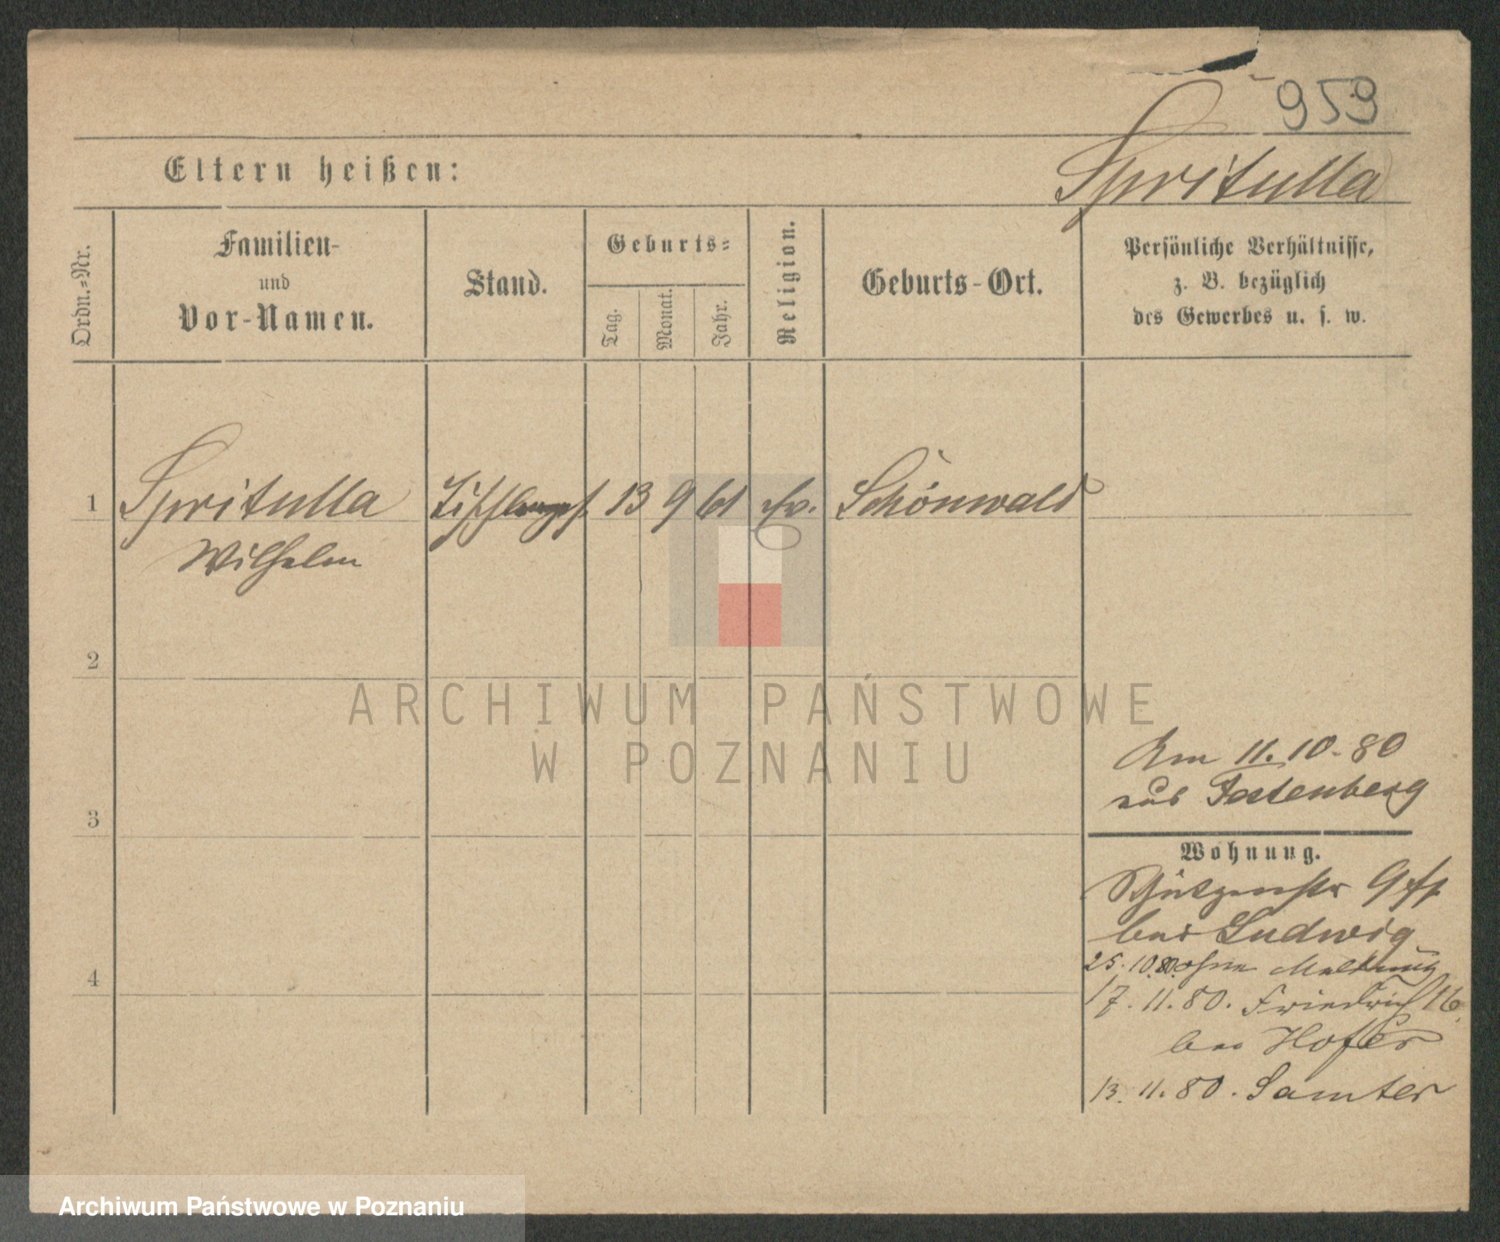 959
Spritulla
Eltern heißen:
Ordn.=Nr.
Familien-
und
Vor-Namen.
Stand.
Geburts=
Tag.
Monat.
Jahr.
Religion.
Geburts-Ort.
Persönliche Verhältnisse,
z. B. bezüglich
des Gewerbes u. s. w.
1 Spritulla 13 9 61 ev. Schönwald
Wilhelm
2
3
4
Am 11.10.80
aus Festenberg
Wohnung.
Schützenstr 9
bei Ludwig
25.10.80. ohne Meldung
17.11.80. Friedrich 16.
bei Hofer
13.11.80. Samter
ARCHIWUM PAŃSTWOWE
W POZNANIU
Archiwum Państwowe w Poznaniu